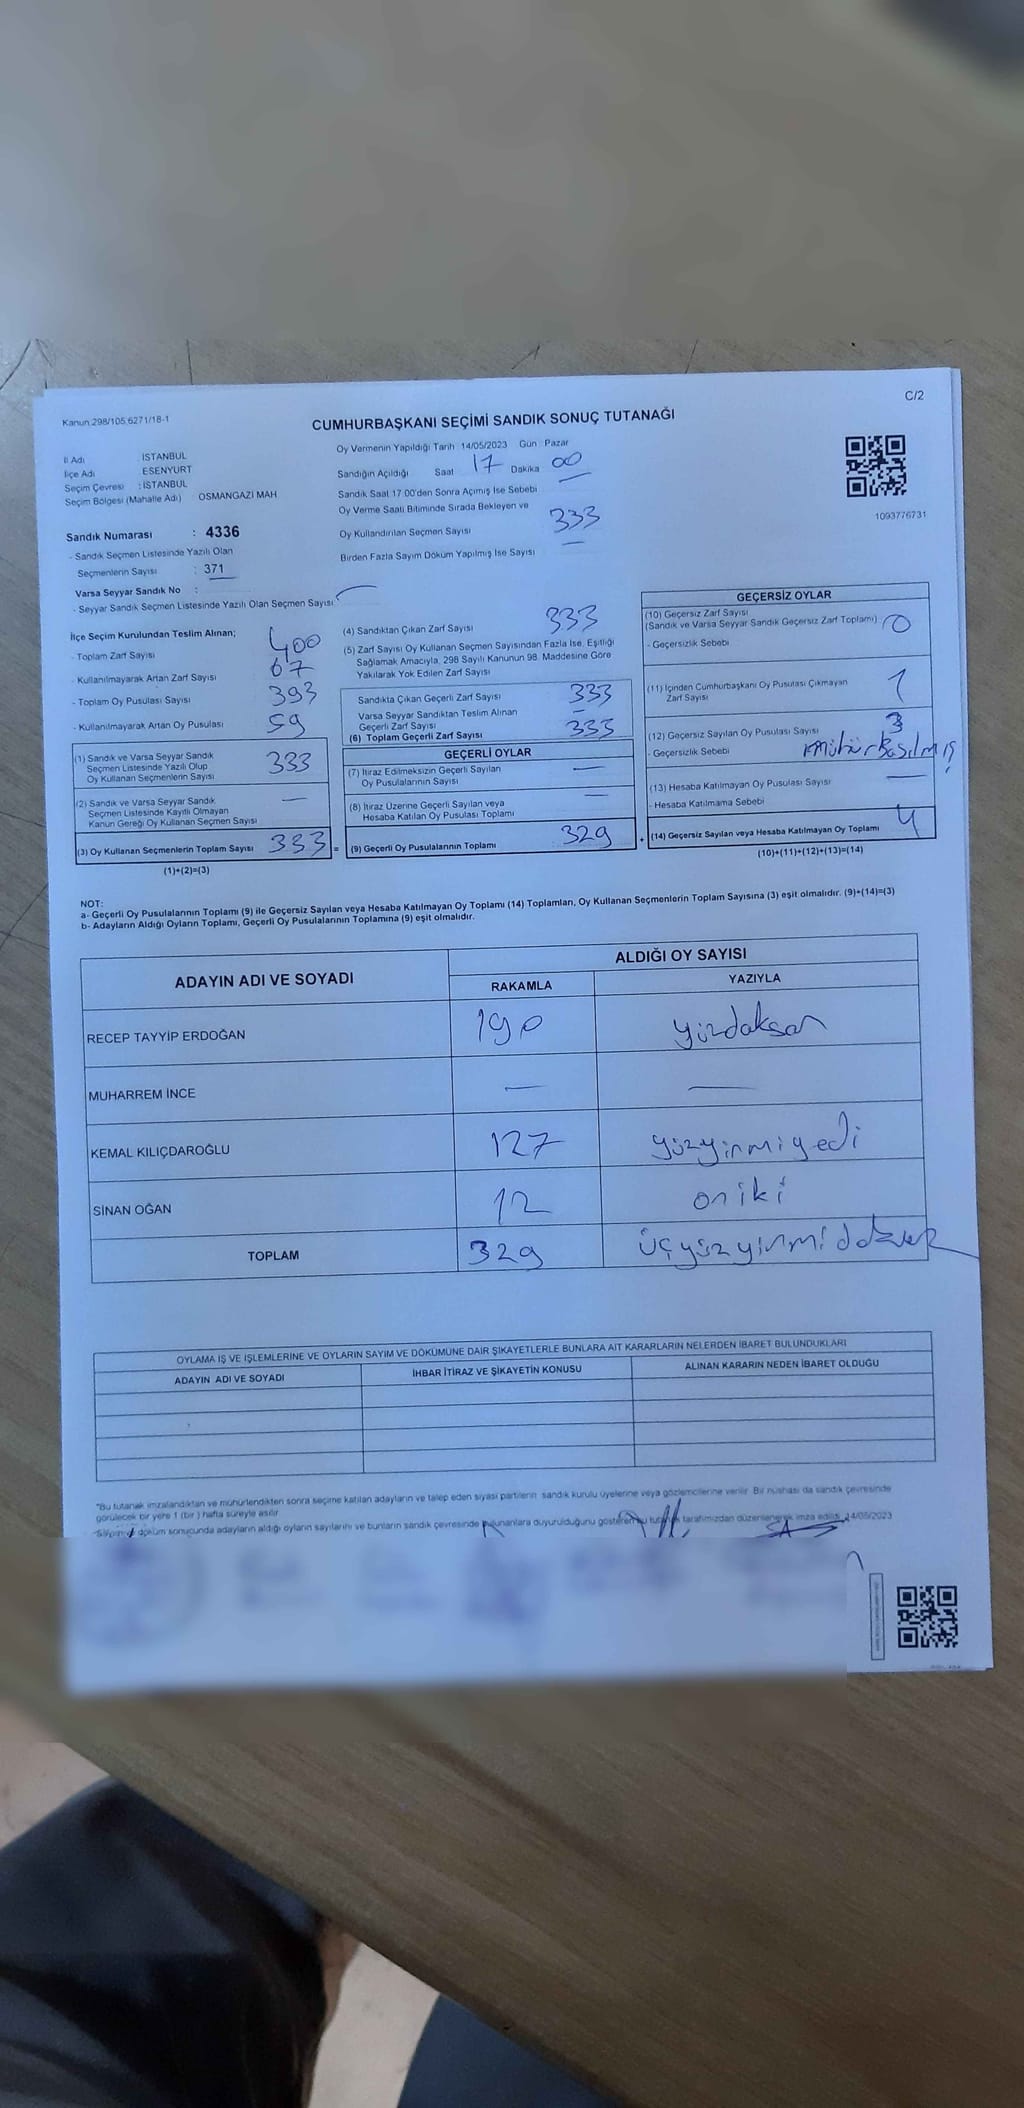 C/2
Kanun:298/105,6271/18-1
CUMHURBAŞKANI SEÇİMİ SANDIK SONUÇ TUTANAĞI
İl Adı : İSTANBUL
İlçe Adı : ESENYURT
Seçim Çevresi : İSTANBUL
Seçim Bölgesi (Mahalle Adı) OSMANGAZİ MAH
Sandık Numarası : 4336
- Sandık Seçmen Listesinde Yazılı Olan
Seçmenlerin Sayısı : 371
Varsa Seyyar Sandık No :
- Seyyar Sandık Seçmen Listesinde Yazılı Olan Seçmen Sayısı:
Oy Vermenin Yapıldığı Tarih : 14/05/2023 Gün : Pazar
Sandığın Açıldığı Saat 17 Dakika 00
Sandık Saat 17:00'den Sonra Açımış İse Sebebi
Oy Verme Saati Bitiminde Sırada Bekleyen ve
Oy Kullandırılan Seçmen Sayısı 333
Birden Fazla Sayım Döküm Yapılmış İse Sayısı
1093776731
İlçe Seçim Kurulundan Teslim Alınan;
- Toplam Zarf Sayısı 400
- Kullanılmayarak Artan Zarf Sayısı 67
- Toplam Oy Pusulası Sayısı 393
- Kullanılmayarak Artan Oy Pusulası 59
(1) Sandık ve Varsa Seyyar Sandık
Seçmen Listesinde Yazılı Olup
Oy Kullanan Seçmenlerin Sayısı 333
(2) Sandık ve Varsa Seyyar Sandık
Seçmen Listesinde Kayıtlı Olmayan
Kanun Gereği Oy Kullanan Seçmen Sayısı —
(3) Oy Kullanan Seçmenlerin Toplam Sayısı 333 =
(1)+(2)=(3)
(4) Sandıktan Çıkan Zarf Sayısı 333
(5) Zarf Sayısı Oy Kullanan Seçmen Sayısından Fazla İse, Eşitliği
Sağlamak Amacıyla, 298 Sayılı Kanunun 98. Maddesine Göre
Yakılarak Yok Edilen Zarf Sayısı —
Sandıkta Çıkan Geçerli Zarf Sayısı 333
Varsa Seyyar Sandıktan Teslim Alınan
Geçerli Zarf Sayısı —
(6) Toplam Geçerli Zarf Sayısı 333
GEÇERLİ OYLAR
(7) İtiraz Edilmeksizin Geçerli Sayılan
Oy Pusulalarının Sayısı —
(8) İtiraz Üzerine Geçerli Sayılan veya
Hesaba Katılan Oy Pusulası Toplamı —
(9) Geçerli Oy Pusulalarının Toplamı 329 +
GEÇERSİZ OYLAR
(10) Geçersiz Zarf Sayısı
(Sandık ve Varsa Seyyar Sandık Geçersiz Zarf Toplamı) 0
- Geçersizlik Sebebi
(11) İçinden Cumhurbaşkanı Oy Pusulası Çıkmayan
Zarf Sayısı 1
(12) Geçersiz Sayılan Oy Pusulası Sayısı 3
- Geçersizlik Sebebi mühür Basılmış
(13) Hesaba Katılmayan Oy Pusulası Sayısı —
- Hesaba Katılmama Sebebi
(14) Geçersiz Sayılan veya Hesaba Katılmayan Oy Toplamı 4
(10)+(11)+(12)+(13)=(14)
NOT:
a- Geçerli Oy Pusulalarının Toplamı (9) ile Geçersiz Sayılan veya Hesaba Katılmayan Oy Toplamı (14) Toplamları, Oy Kullanan Seçmenlerin Toplam Sayısına (3) eşit olmalıdır. (9)+(14)=(3)
b- Adayların Aldığı Oyların Toplamı, Geçerli Oy Pusulalarının Toplamına (9) eşit olmalıdır.
ADAYIN ADI VE SOYADI ALDIĞI OY SAYISI
RAKAMLA YAZIYLA
RECEP TAYYİP ERDOĞAN 190 yüzdoksan
MUHARREM İNCE — —
KEMAL KILIÇDAROĞLU 127 yüzyirmiyedi
SİNAN OĞAN 12 oniki
TOPLAM 329 üçyüzyirmidokuz
OYLAMA İŞ VE İŞLEMLERİNE VE OYLARIN SAYIM VE DÖKÜMÜNE DAİR ŞİKAYETLERLE BUNLARA AİT KARARLARIN NELERDEN İBARET BULUNDUKLARI
ADAYIN ADI VE SOYADI İHBAR İTİRAZ VE ŞİKAYETİN KONUSU ALINAN KARARIN NEDEN İBARET OLDUĞU
"Bu tutanak imzalandıktan ve mühürlendikten sonra seçime katılan adayların ve talep eden siyasi partilerin sandık kurulu üyelerine veya gözlemcilerine verilir. Bir nüshası da sandık çevresinde
görülecek bir yere 1 (bir) hafta süreyle asılır
Sayım ve döküm sonucunda adayların aldığı oyların sayılarını ve bunların sandık çevresinde bulunanlara duyurulduğunu gösteren bu tutanak tarafımızdan düzenlenerek imza edildi. 14/05/2023